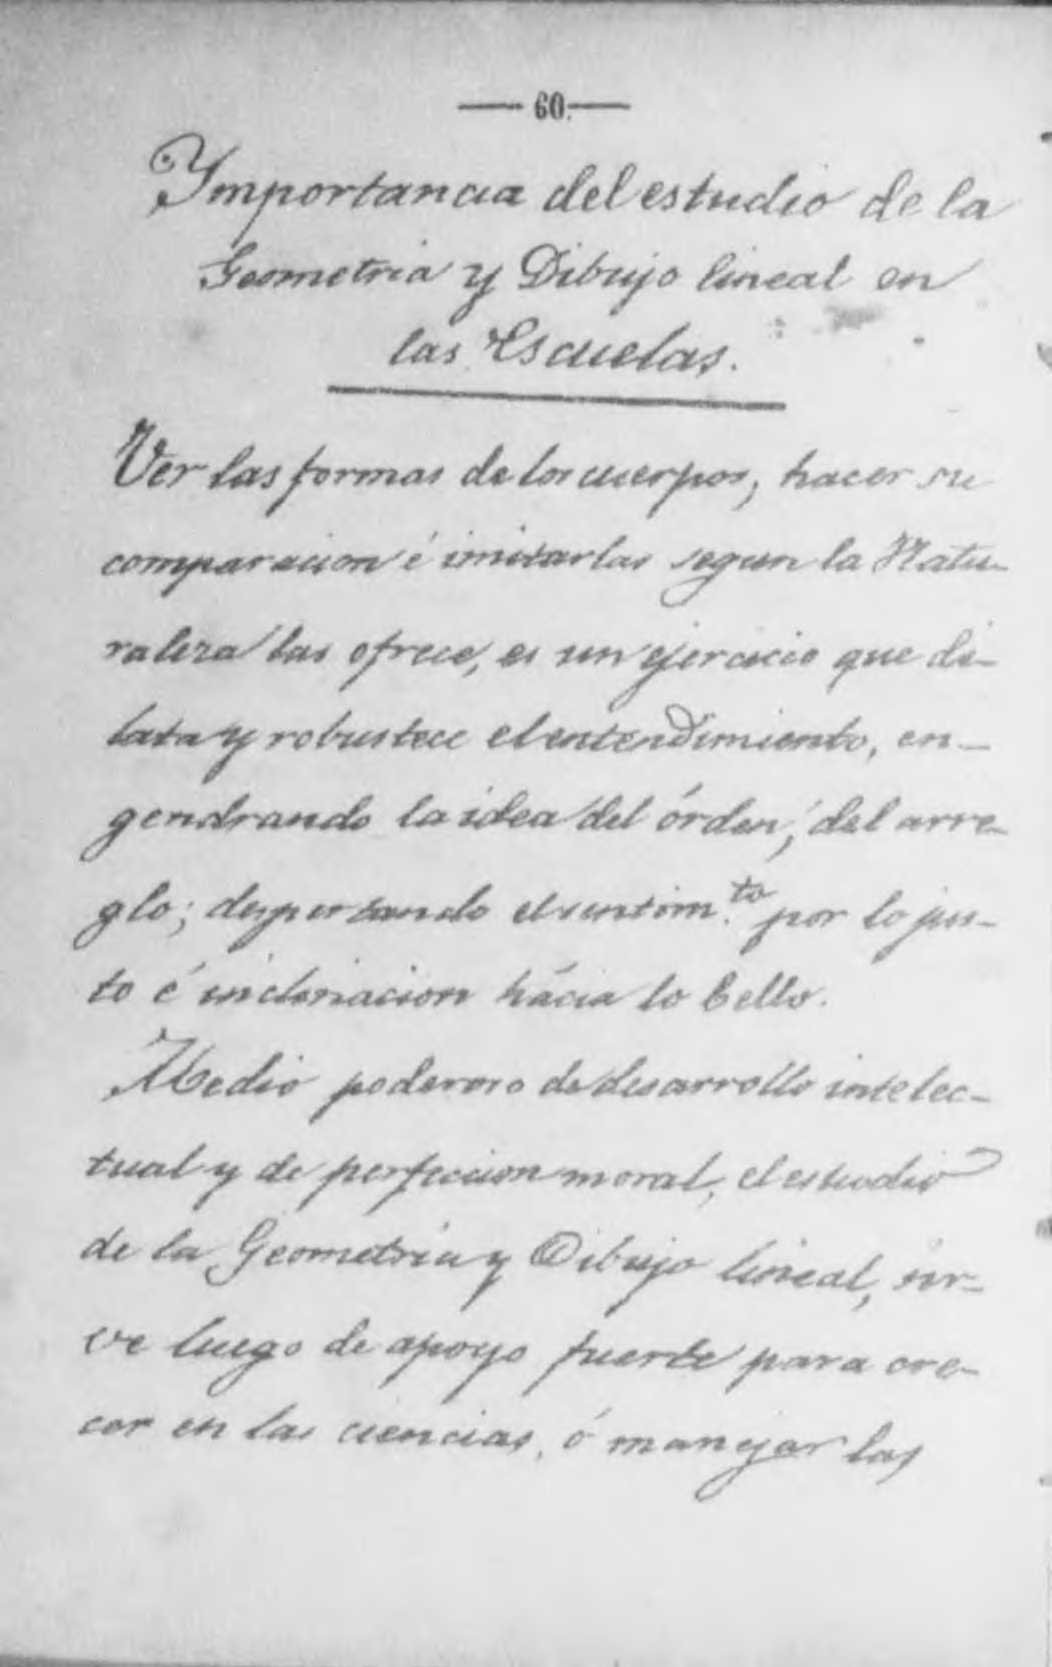 — 60. —
Ymportancia del estudio de la
Geometria y Dibujo lineal en
las Escuelas.
Ver las formas de los cuerpos, hacer su
comparacion é imitarlas segun la Natu-
raleza las ofrece, es un ejercicio que di-
lata y robustece el entendimiento, en-
gendrando la idea del órden, del arre-
glo; despertando el sentim.to por lo jus-
to é inclinacion hácia lo bello.
Medio poderoso de desarrollo intelec-
tual y de perfeccion moral, el estudio
de la Geometria y Dibujo lineal, sir-
ve luego de apoyo fuerte para cre-
cer en las ciencias, ó manejar las